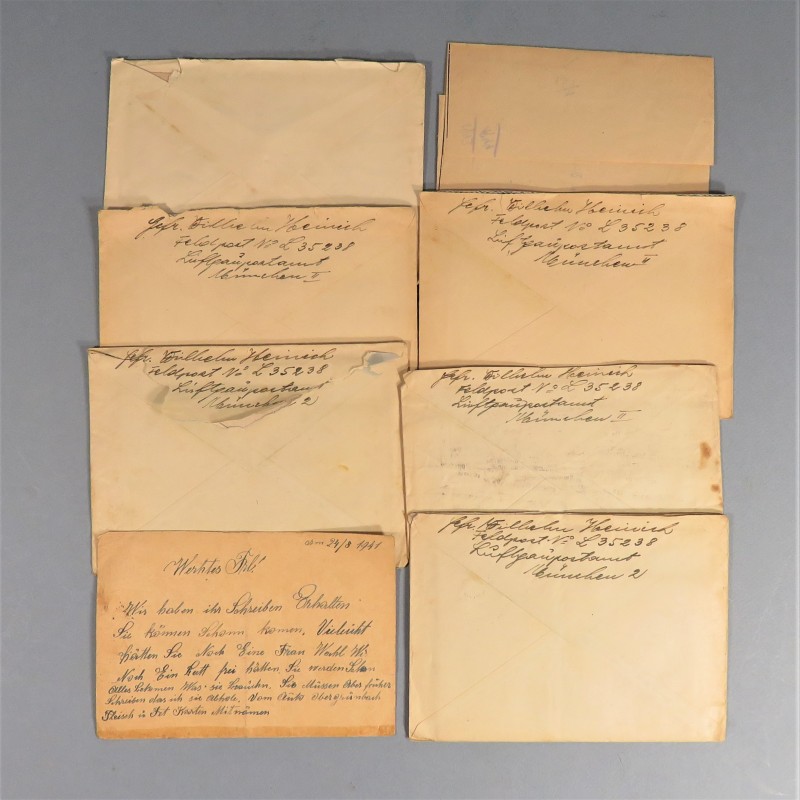 Gefr. Wilhelm Heinrich
Feldpost No L 35238
Luftgaupostamt
München II
Gefr. Wilhelm Heinrich
Feldpost No L 35238
Luftgaupostamt
München II
Gefr. Wilhelm Heinrich
Feldpost No L 35238
Luftgaupostamt
München 2
Gefr. Wilhelm Heinrich
Feldpost No L 35238
Luftgaupostamt
München II
am 24/3 1941
Wertes Frl!
Wir haben ihr Schreiben Erhalten
Sie können Schonn komen, Vieleicht
hätten Sie Noch Eine Frau Wohl Wi
Noch Ein Bett frei hätten, Sie werden
Alles bekomen Was sie brauchn. Sie Müssen Aber früher
Schreiben das ich sie abhole, Vom Auto obergrünbach
Fleisch u Fet Karten Mitnämen
Gefr. Wilhelm Heinrich
Feldpost No L 35238
Luftgaupostamt
München 2